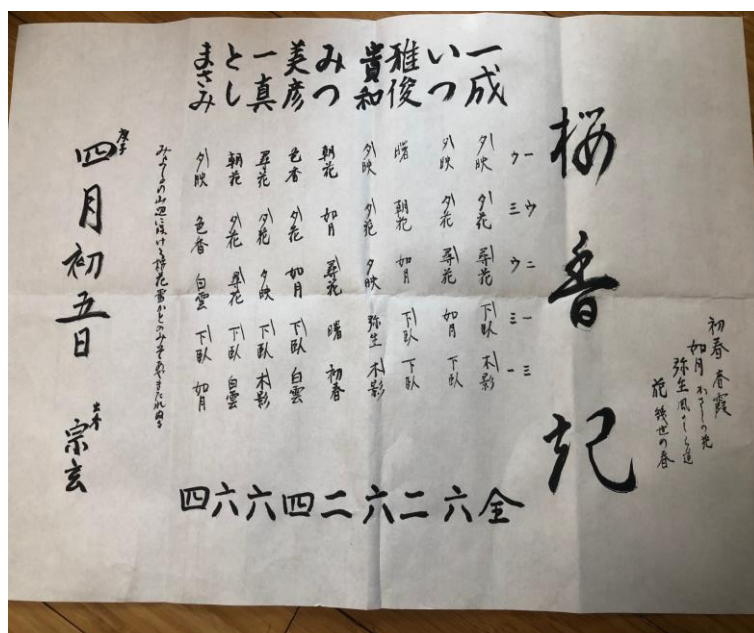 初春 春霞
如月 かさしの花
弥生 風の
花 幾世の春
桜香記
一ウ ウ三 二ウ 一三 三一
一成 夕映 夕花 尋花 下臥 木影 全
いつ 夕映 夕花 尋花 如月 下臥 六
雅俊 曙 朝花 如月 下臥 下臥 二
貴和 夕映 夕花 夕映 弥生 木影 六
みつ 朝花 如月 尋花 曙 初春 二
美彦 色香 夕花 如月 下臥 白雲 四
一真 尋花 夕花 夕映 下臥 木影 六
とし 朝花 夕花 尋花 下臥 白雲 六
まさみ 夕映 色香 白雲 下臥 如月 四
みよしのの山辺にさける桜花雪かとのみそあやまたれける
庚子 四月初五日 宗玄